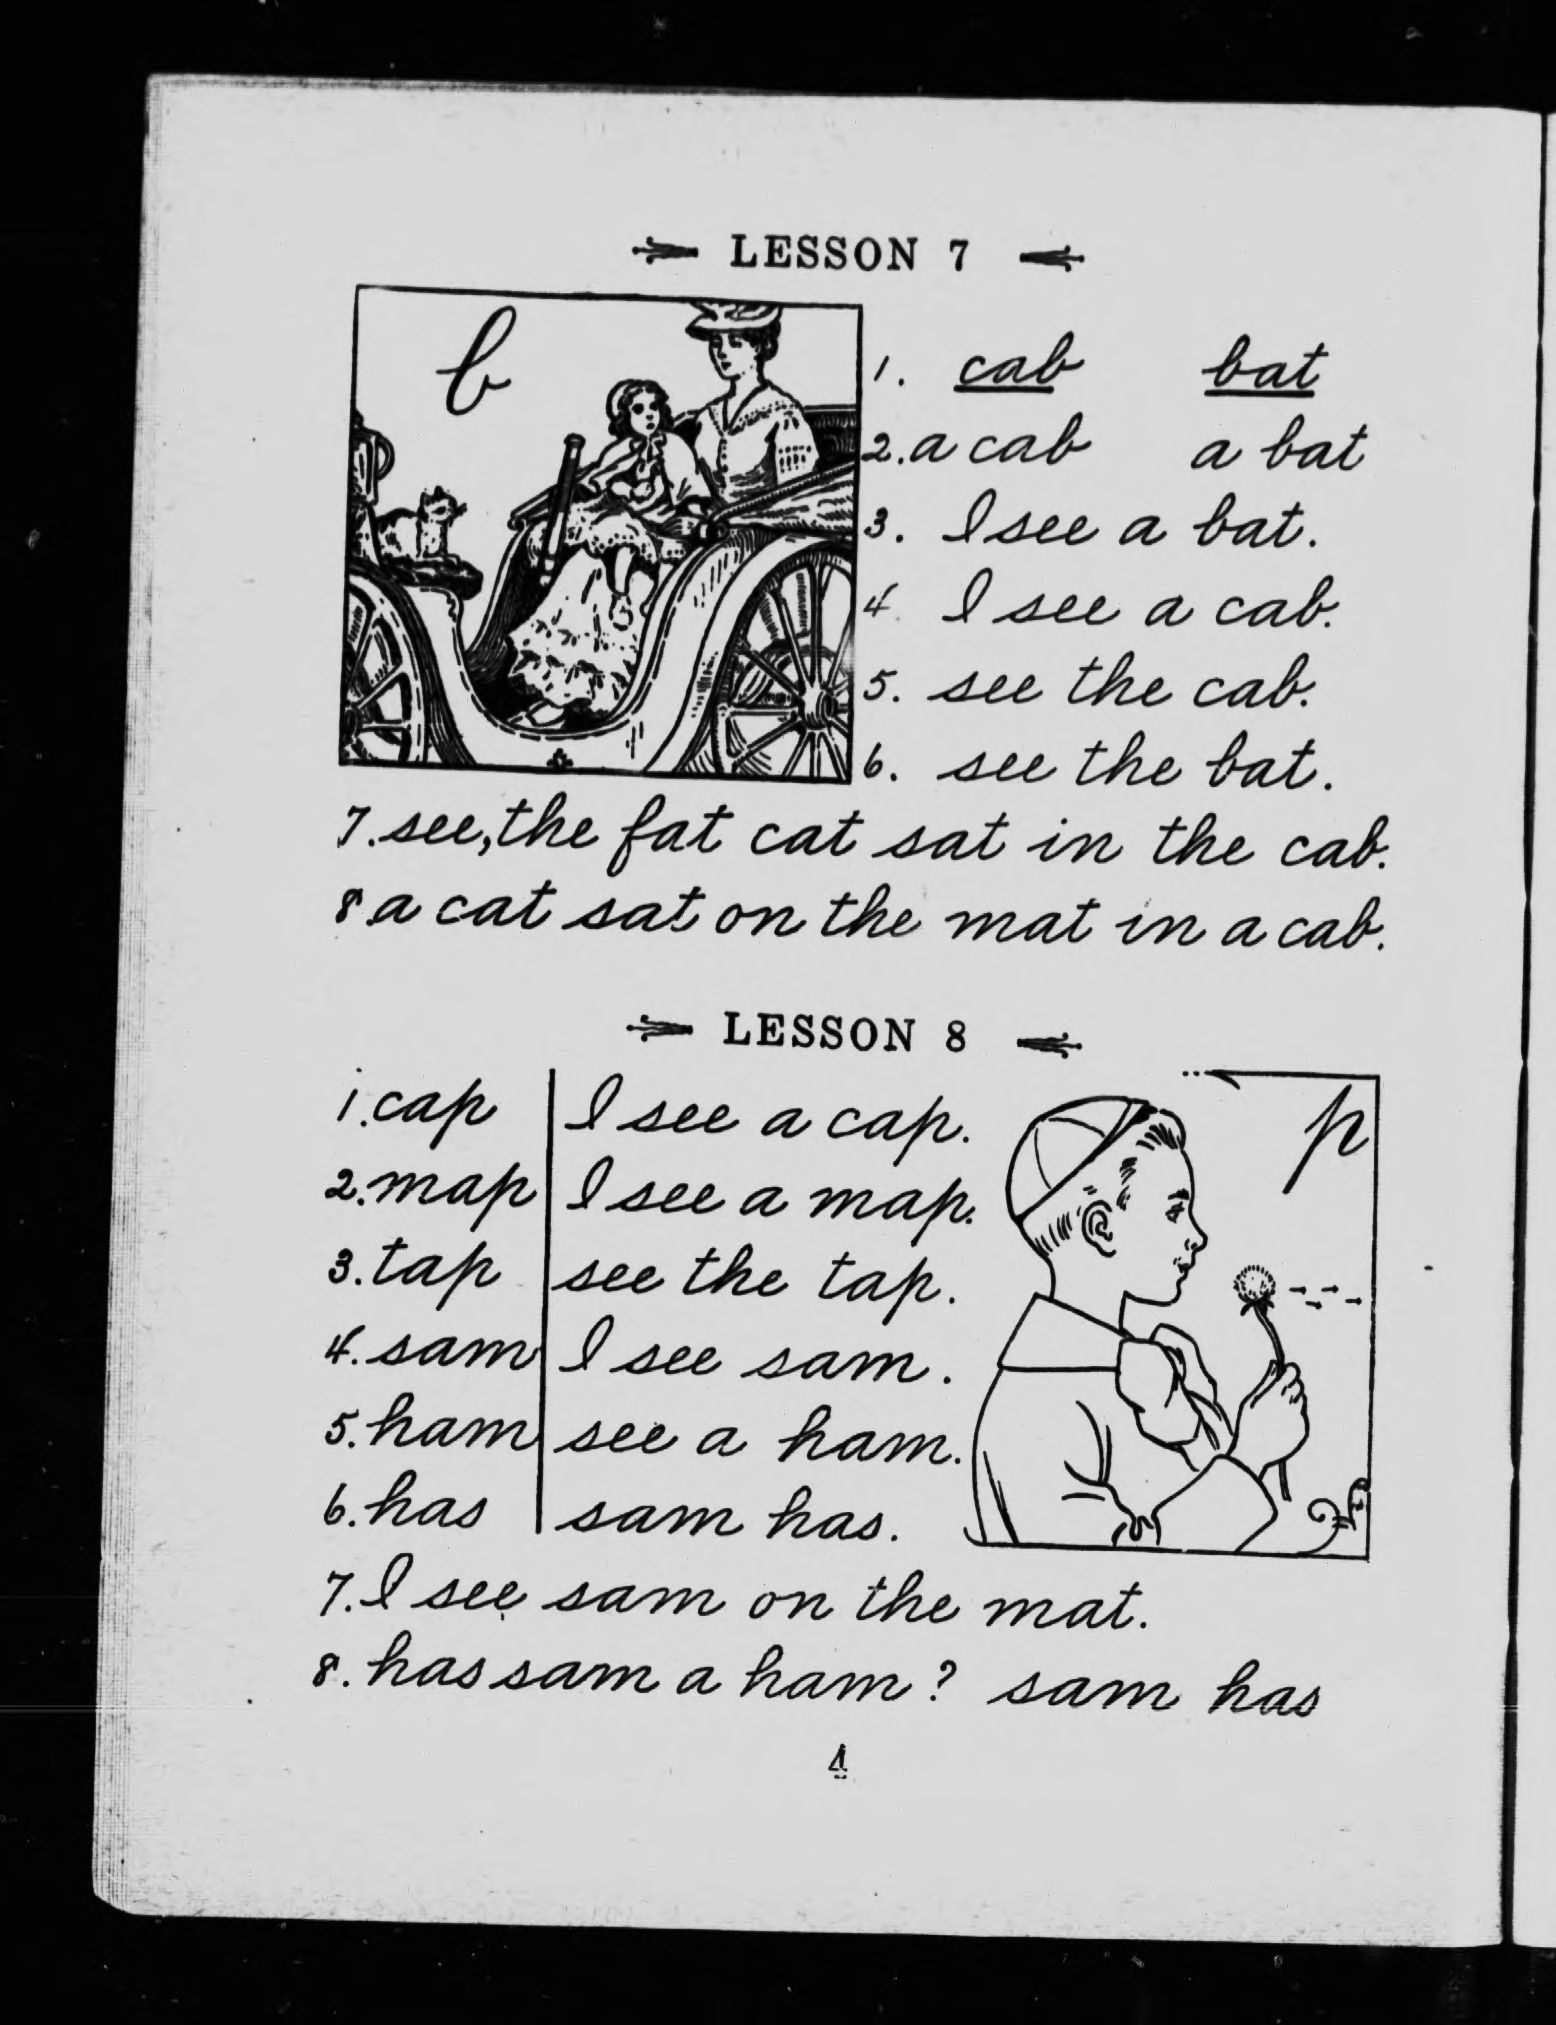 LESSON 7
b
1. cab bat
2. a cab a bat
3. I see a bat.
4. I see a cab.
5. see the cab.
6. see the bat.
7. see, the fat cat sat in the cab.
8 a cat sat on the mat in a cab.
LESSON 8
p
1. cap I see a cap.
2. map I see a map.
3. tap see the tap.
4. sam I see sam.
5. ham see a ham.
6. has sam has.
7. I see sam on the mat.
8. has sam a ham? sam has
4